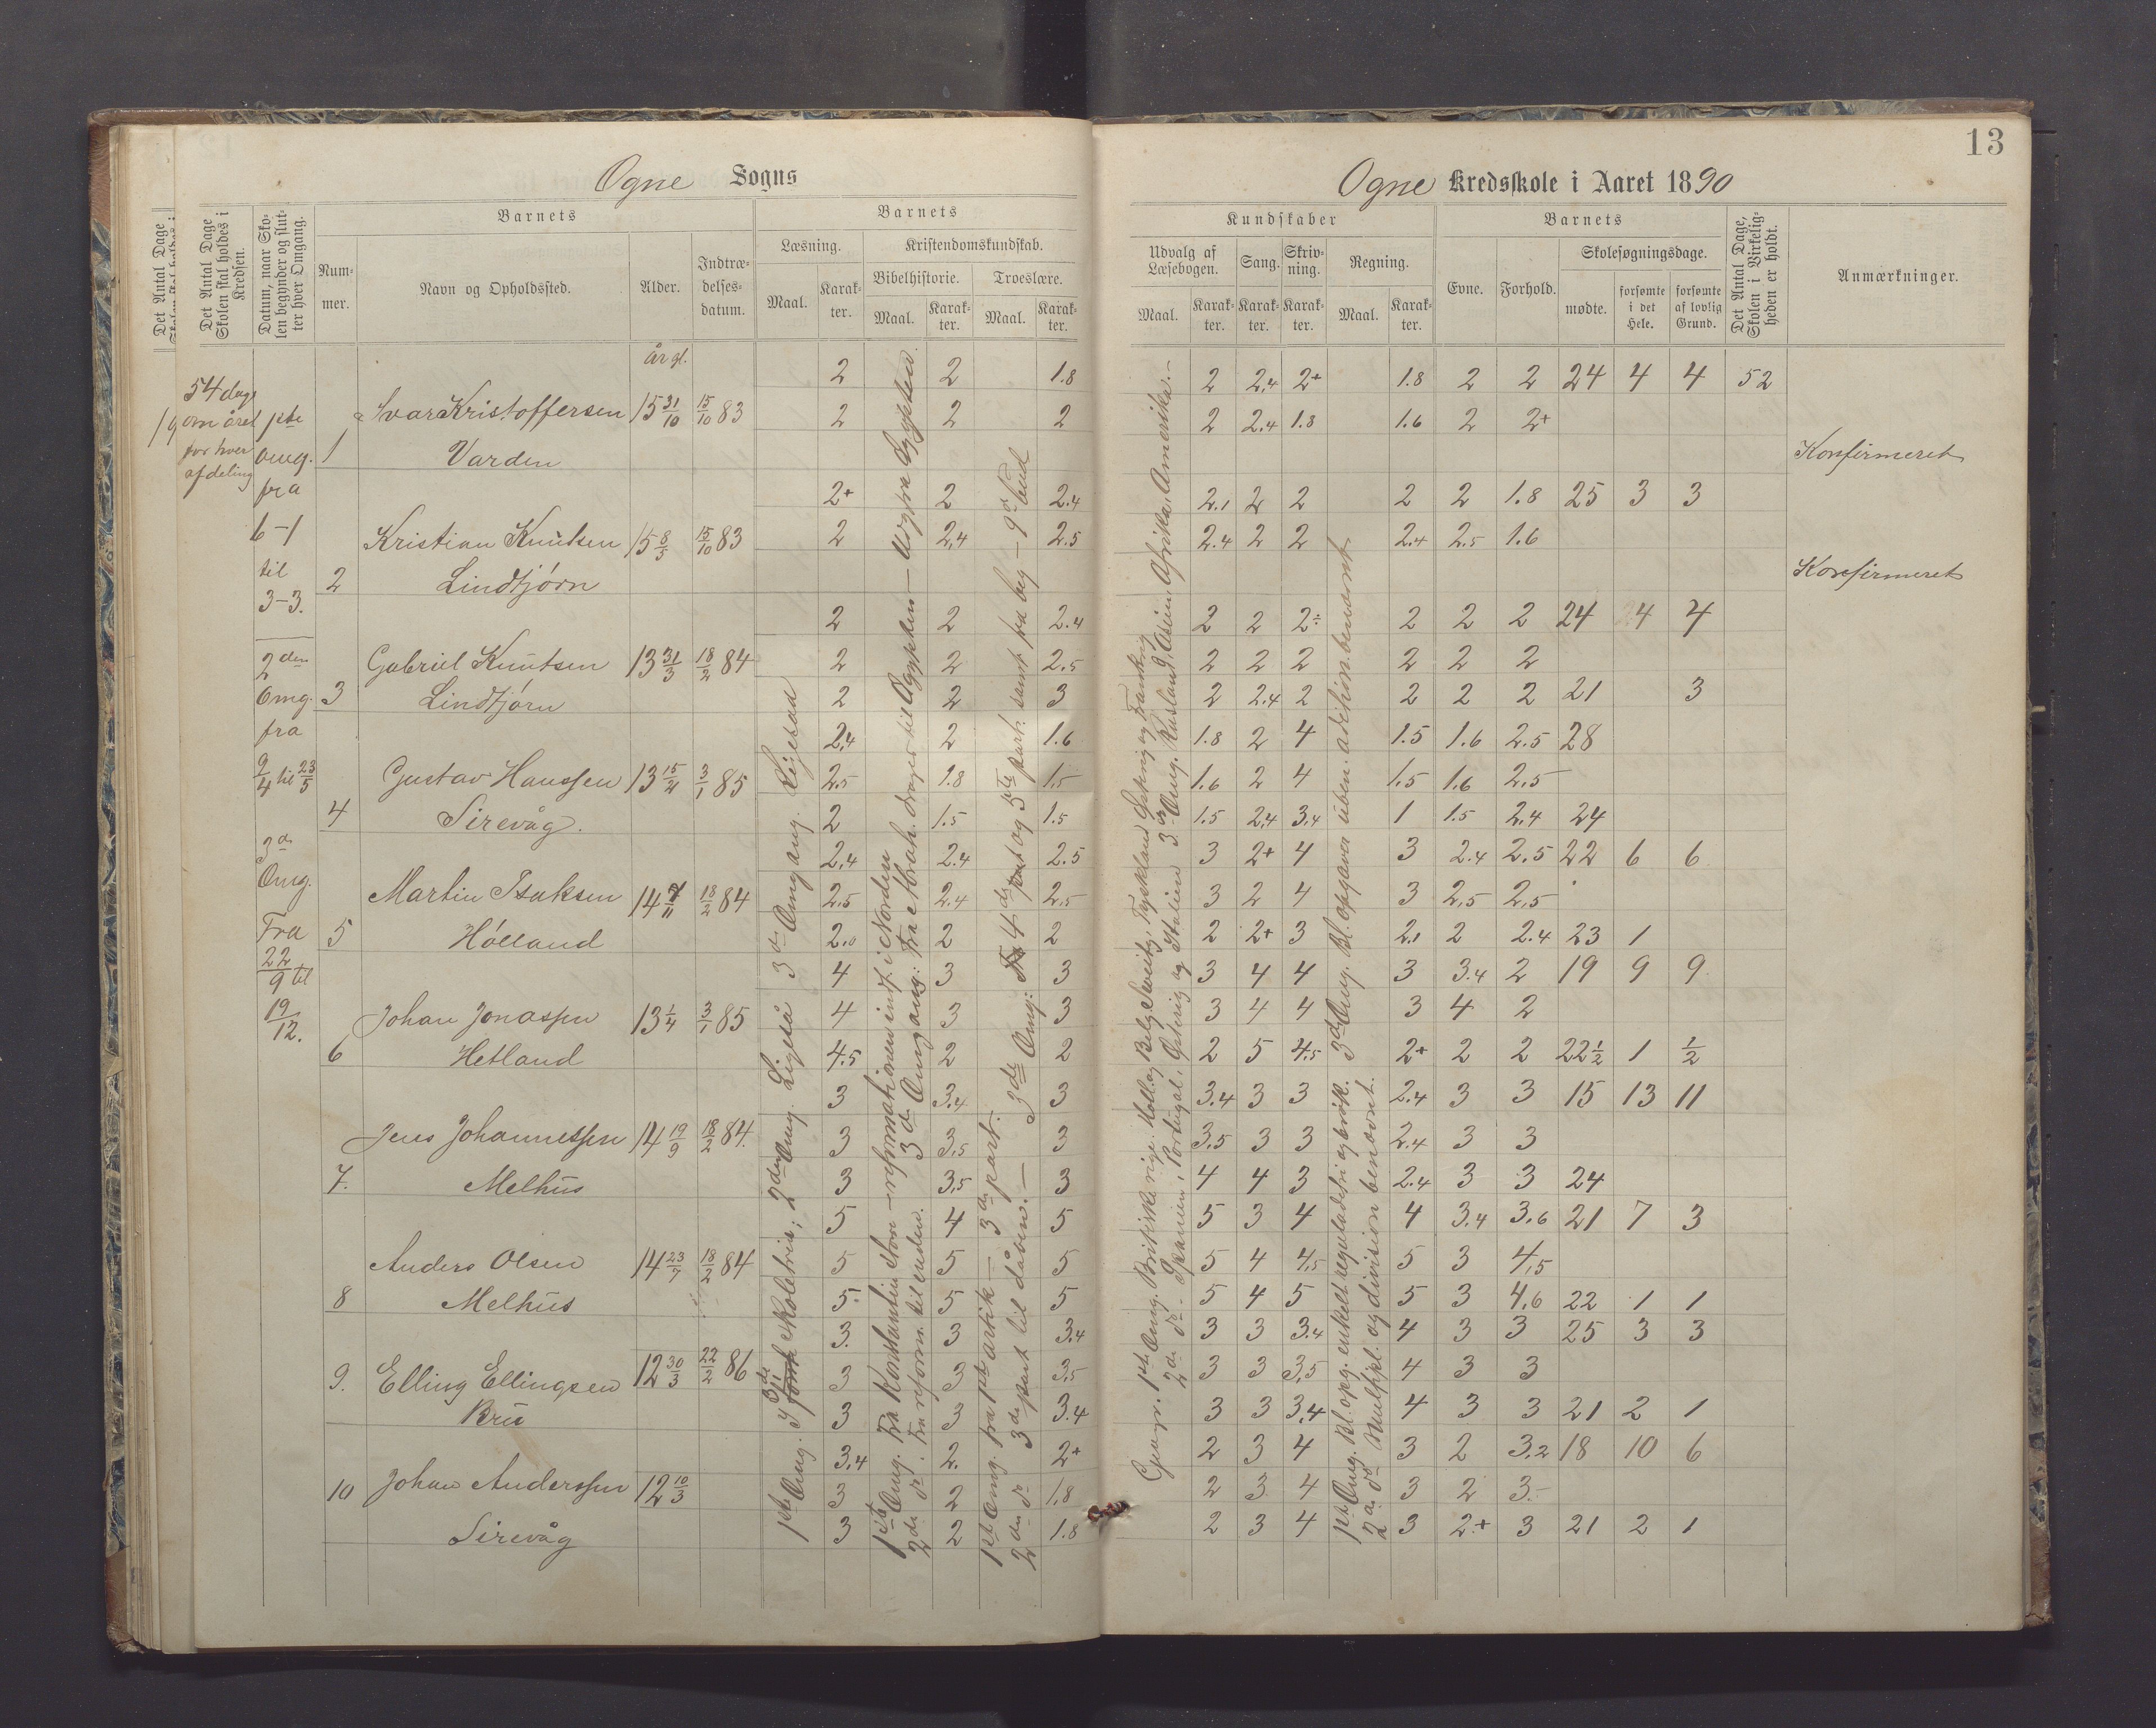 Ogne Sogns
Det Antal Dage
Det Antal Dage Skolen skal holdes i Kredsen.
Datum, naar Skolen begynder og slutter hver Omgang.
Nummer.
Barnets
Navn og Opholdssted.
Alder.
Indtrædelsesdatum.
Barnets
Læsning.
Maal.
Karakter.
Kristendomskundskab.
Bibelhistorie.
Maal.
Karakter.
Troeslære.
Maal.
Karakter.
54 dage
om året
for hver
afdeling
1ste
omg.
fra
6-1
til
3-3.
2den
Omg.
fra
9/4 til 23/5
3de
Omg.
Fra
22/9 til
19/12.
år gl.
1 Ivar Kristoffersen 15 31/10 15/10 83
Varden
2 Kristian Knutsen 15 8/5 15/10 83
Lindtjørn
3 Gabriel Knutsen 13 31/3 18/2 84
Lindtjørn
4 Gustav Hanssen 13 15/4 3/1 85
Sirevåg.
5 Martin Isaksen 14 7/11 18/2 84
Hølland
6 Johan Jonassen 13 1/4 3/1 85
Hetland
7. Jens Johannessen 14 19/9 18/2 84.
Melhus
8 Anders Olsen 14 23/7 18/2 84
Melhus
9. Elling Ellingsen 12 30/3 22/2 86
Bru
10 Johan Anderssen 12 10/3
Sirevåg
1ste Omg. 3die skoletrin; 2den Omg. Ligeså 3de Omgang. Ligeså
1ste Omg. Fra Konstantin d. Store – reformationen indf. i Norden
2de do. Fra reform. til enden. 3de Omgang: Fra Abrah. drager til Ægypten – Udg. fra Ægypten.
1ste Omg. fra 1ste artik – 3de part.
2den do 3de part til dåben. – 3de Omg: 4de part og 5te part: samt fra beg – 9de bud
2 2 1.8
2 2 2
2+ 2 2.4
2 2,4 2.5
2 2 2.4
2 2 2.5
2 2 3
2,4 2 1.6
2.5 1.8 1.5
2 1.5 1.5
2,4 2.4 2.5
2.5 2.4 2.5
2.0 2 2
4 3 3
4 3 3
4.5 2 2
3 3.4 3
3 3,5 3
3 3,5 3
5 4 5
5 5 5
5. 5 5
3. 3 3.4
3 3 3.5
3 3 3.4
3.4 2. 2+
3 2 1,8
3 2 1.8
13
Ogne Kredsskole i Aaret 1890
Kundskaber
Udvalg af Læsebogen.
Maal.
Karakter.
Sang.
Karakter.
Skrivning.
Karakter.
Regning.
Maal.
Karakter.
Barnets
Evne.
Forhold.
Skolesøgningsdage.
mødte.
forsømte i det Hele.
forsømte af lovlig Grund.
Det Antal Dage, Skolen i Virkeligheden er holdt.
Anmærkninger.
Geogr. 1ste Omg. Britiske rige. Holl. og Belg. Sveits, Tyskland Østrig og Frankrig
2de do. – Spanien, Portugal, Østerig og Italien 3de Omg. Rusland, Asien, Afrika, Amerika. –
1ste Omg. Bl. opg. enkelt reguladetri og brøk. 3de Omg. Bl. opgaver i uben. addition. benævnt
2de do Multipl. og division benævnt.
2 2,4 2+ 1.8 2 2 24 4 4 52
2 2.4 1.8 1.6 2 2+
Konfirmeret
2.1 2 2 2 2 1.8 25 3 3
2.4 2 2 2.4 2.5 1.6
Konfirmeret
2 2 2÷ 2 2 2 24 4 4
2 2 2 2 2 2
2 2.4 2 2 2 2 21 3
1.8 2 4 1.5 1.6 2.5 28
1.6 2 4 1.5 1.6 2.5
1.5 2,4 3.4 1 1.5 2.4 24
3 2+ 4 3 2.4 2.5 22 6 6
3 2 4 3 2,5 2,5
2 2+ 3 2.1 2 2.4 23 1
3 4 4 3 3.4 2 19 9 9
3 4 4 3 4 2
2 5 4.5 2+ 2 2 22½ 1 ½
3.4 3 3 2.4 3 3 15 13 11
3,5 3 3 2.4 3 3
4 4 3 2.4 3 3 24
5 3 4 4 3.4 3.6 21 7 3
5 4 4,5 5 3 4,5
5 4 5 5 3 4,6 22 1 1
3 3 3.4 4 3 3 25 3 3
3 3 3,5 4 3 3
3 3 3,4 4 3 3 21 2 1
2 3 4 3 2 3.2 18 10 6
2 3 4 3 2 3.-
2 3 4 3 2+ 3 21 2 1